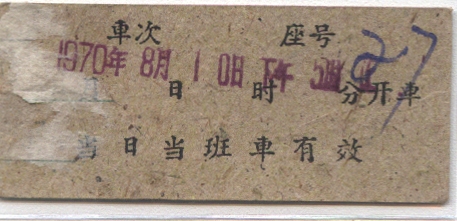 車次 座号 27
1970年 8月 10日 下午 5
日 时 分开車
当日当班車有效